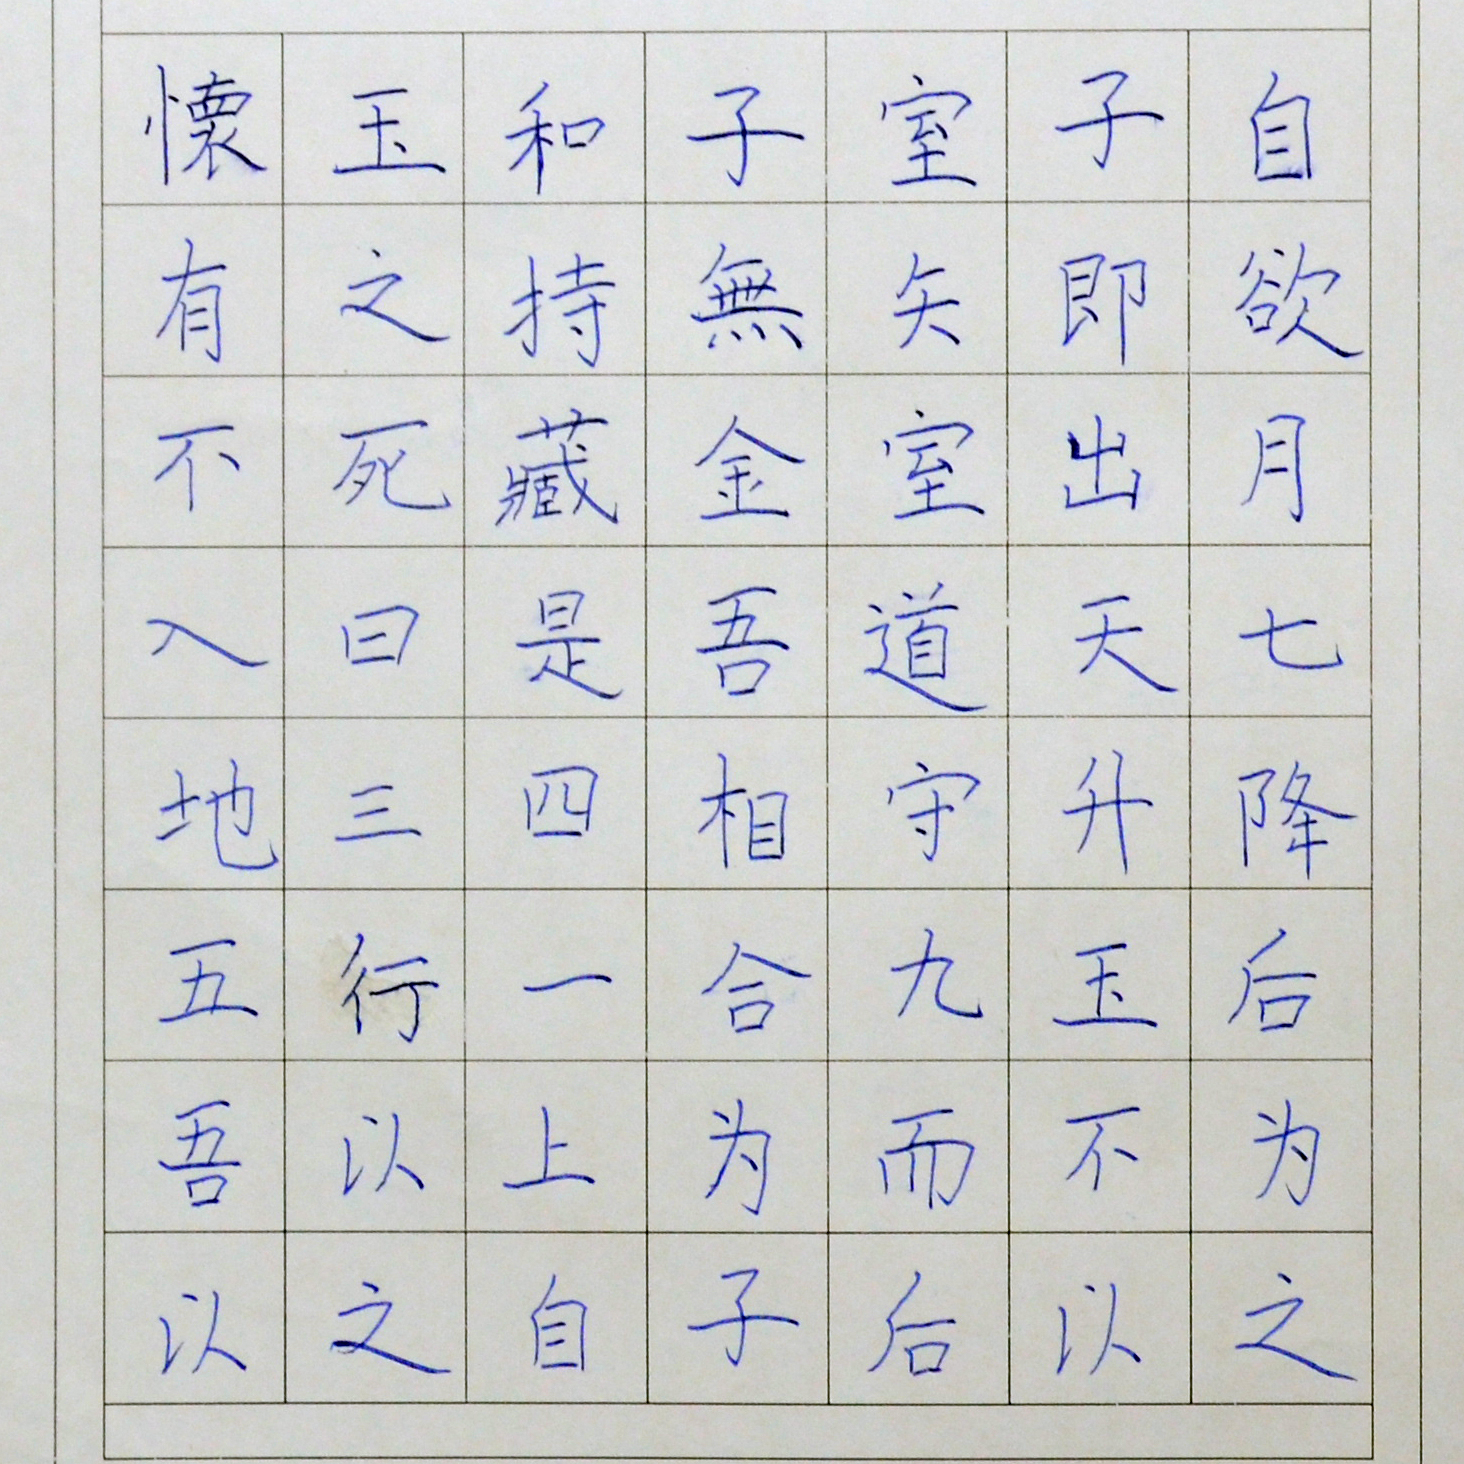 懷玉和子室子自
有之持無矢即欲
不死藏金室出月
入曰是吾道天七
地三四相守升降
五行一合九玉后
吾以上为而不为
以之自子后以之